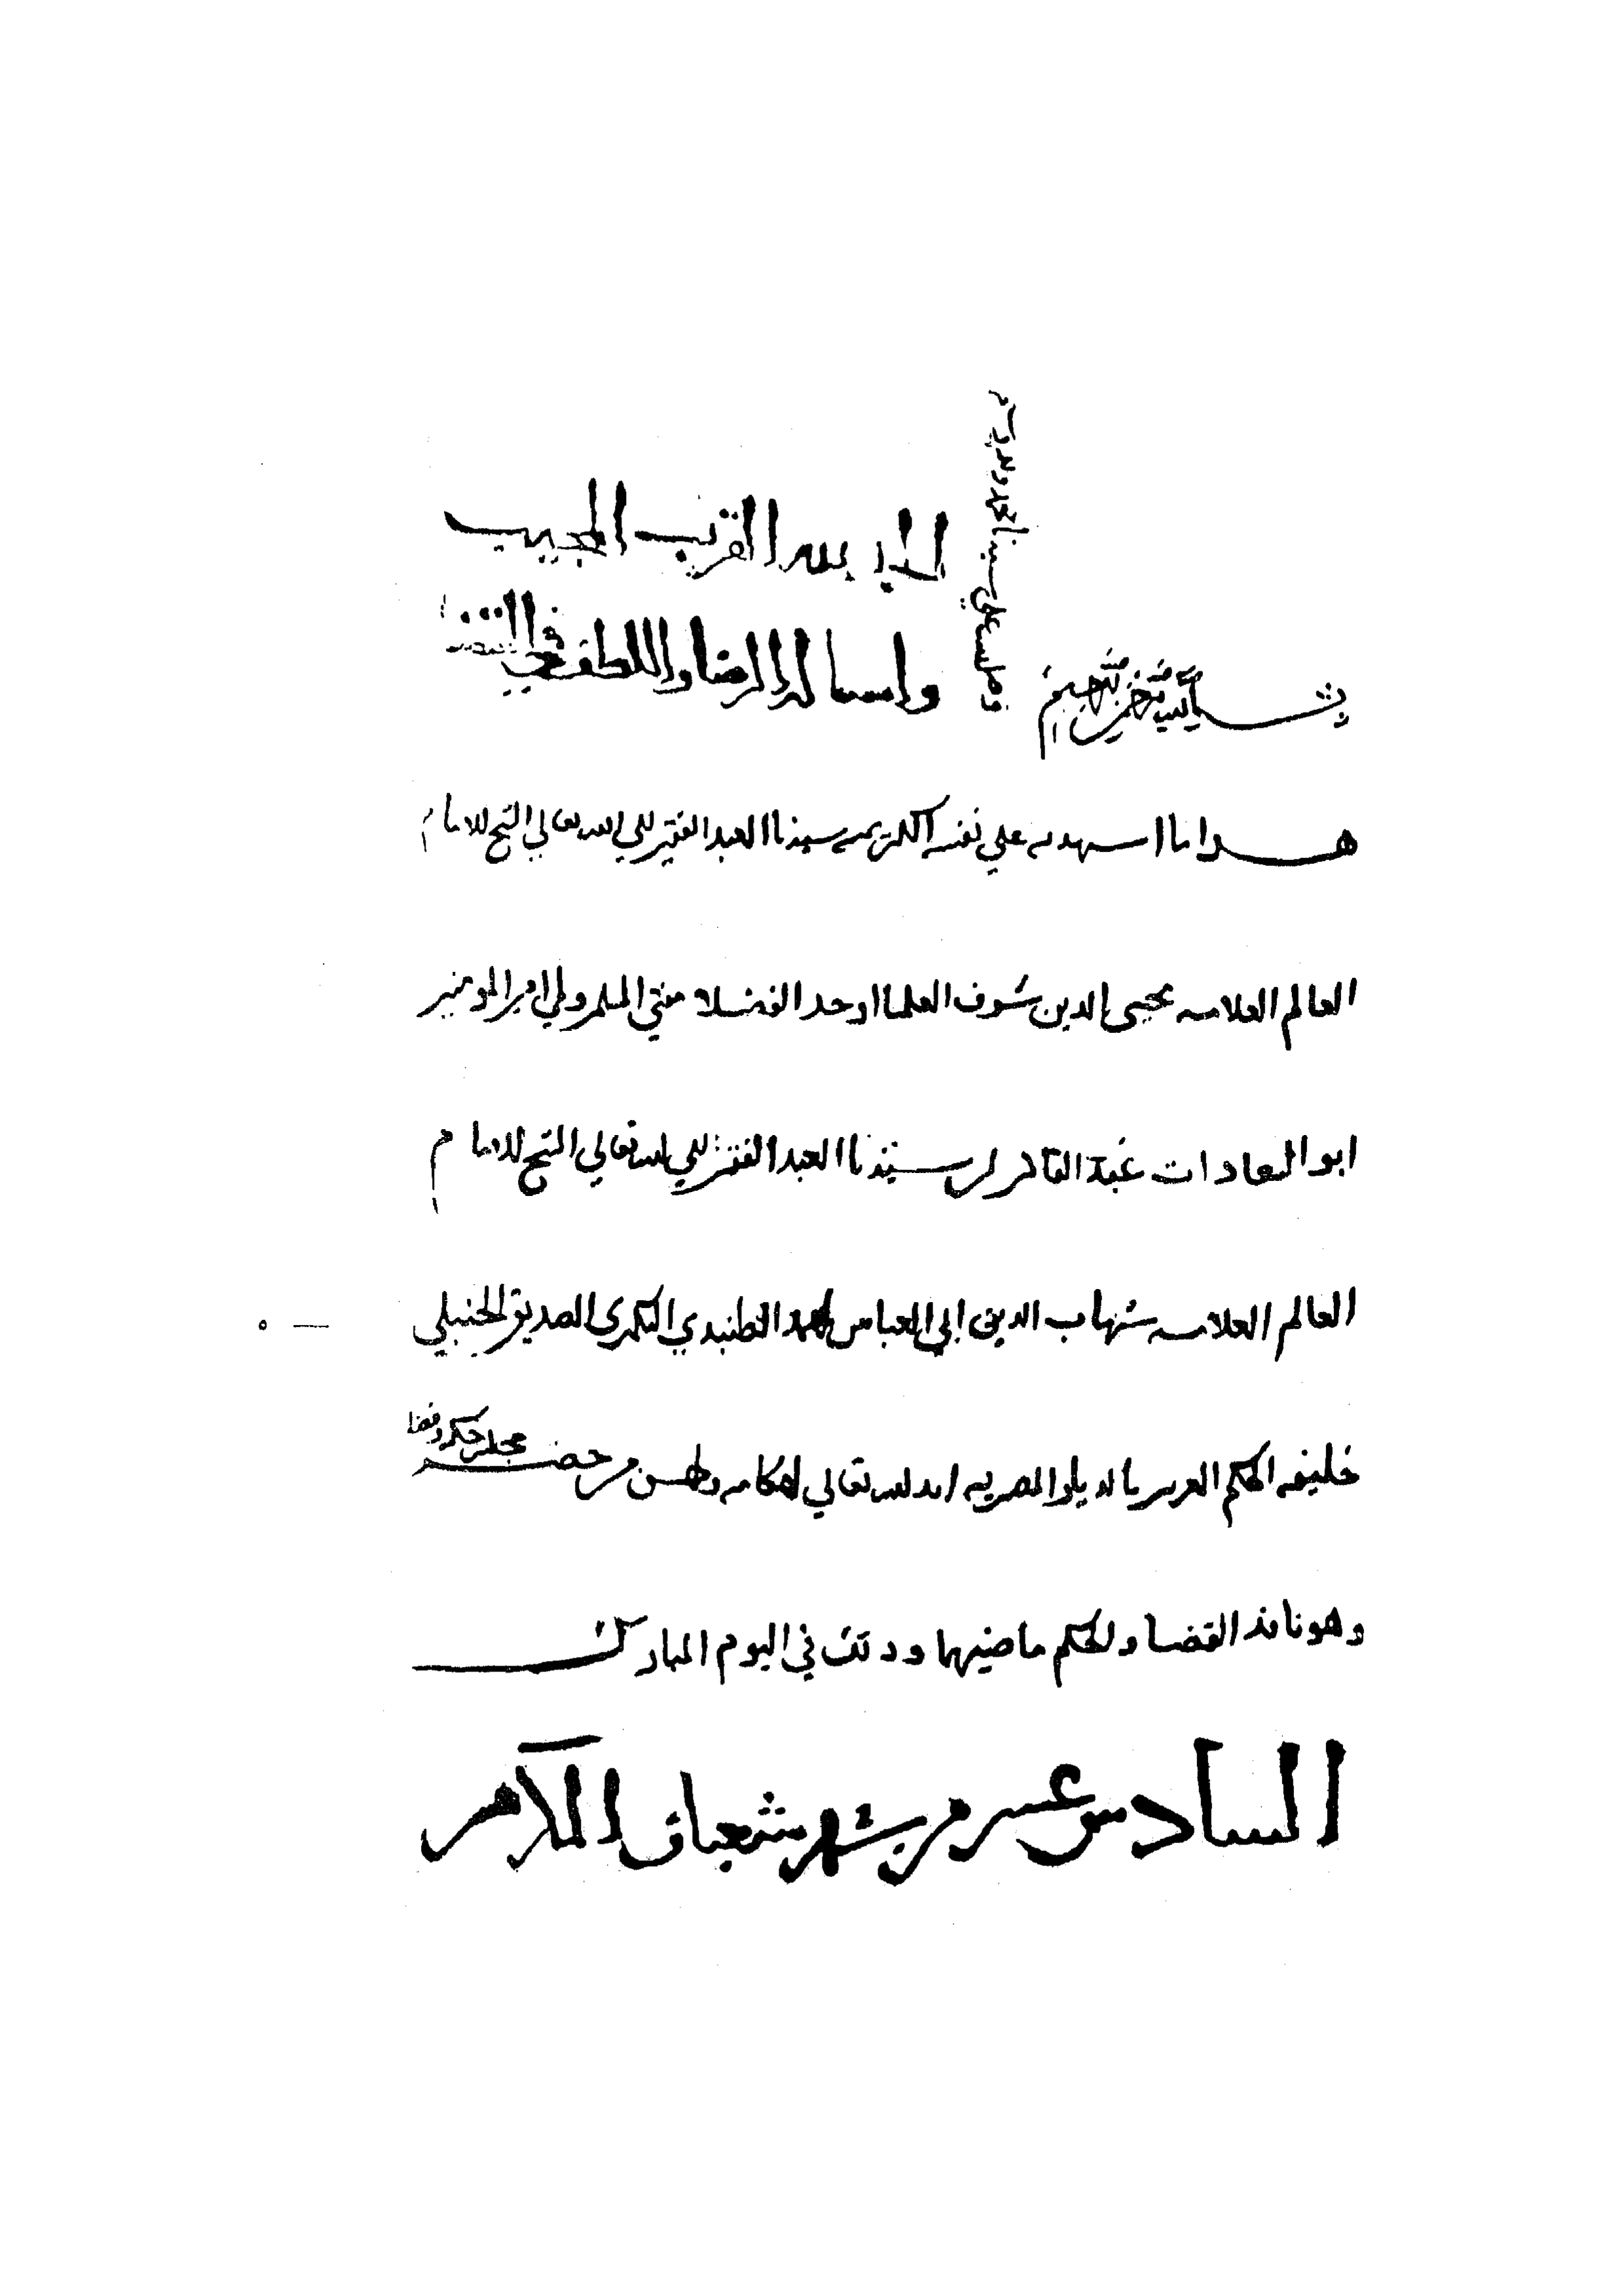 الايذ بالله القريب المجيب
واساله الرضا واللطف في
بسم الله الرحمن الرحيم
هذا ما اشهد به علي نفسه الكريمه سيدنا العبد الفقير الي الله تعالي الشيخ الامام
العالم العلامه محيي الدين شرف العلما اوحد الفضلا مفتي المسلمين ولي امير المومنين
ابو السعادات عبد القادر بن سيدنا العبد الفقير الي الله تعالي الشيخ الامام
العالم العلامه شهاب الدين ابي العباس احمد الطنبدي البكري الصديقي الحنبلي
خليفه الحكم العزيز بالديار المصريه ايد الله تعالي احكامه واحسن
مجلس حكمه وقضا
وهو نافذ القضا والحكم ماضيهما وذلك في اليوم المبارك
السادس عشر من شهر شعبان المكرم